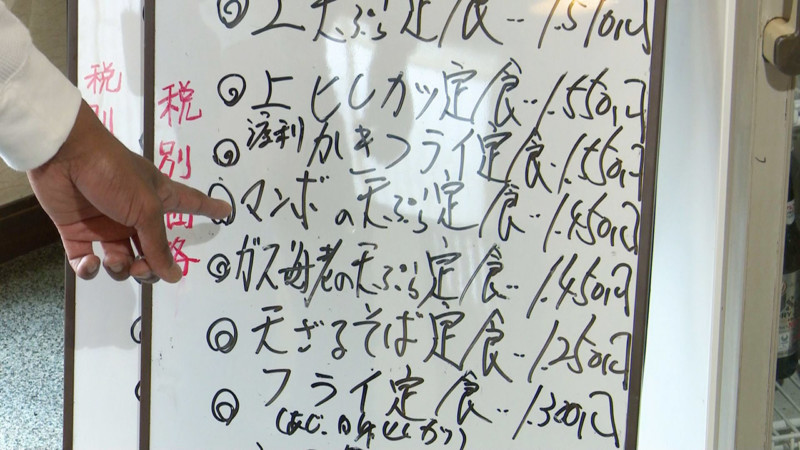 税別
税別価格
◎上天ぷら定食‥1.510円
◎上ヒレカツ定食‥1.550円
◎渡利かきフライ定食‥1.550円
◎マンボの天ぷら定食‥1.450円
◎ガス海老の天ぷら定食‥1.450円
◎天ざるそば定食‥1.250円
◎フライ定食‥1.300円
(あじ、カツ)